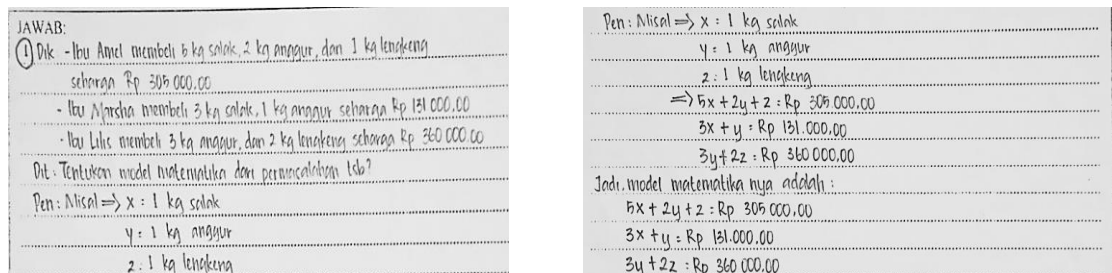 JAWAB:
1 Dik - Ibu Amel membeli 5 kg salak, 2 kg anggur, dan 1 kg lengkeng
seharga Rp 305 000.00
- Ibu Marsha membeli 3 kg salak, 1 kg anggur seharga Rp 131 000.00
- Ibu Lilis membeli 3 kg anggur, dan 2 kg lengkeng seharga Rp 360 000.00
Dit : Tentukan model matematika dari permasalahan tsb?
Pen : Misal => x : 1 kg salak
y : 1 kg anggur
z : 1 kg lengkeng
Pen : Misal => x : 1 kg salak
y : 1 kg anggur
z : 1 kg lengkeng
=> 5x + 2y + z : Rp 305 000.00
3x + y : Rp 131.000.00
3y + 2z : Rp 360 000.00
Jadi. model matematika nya adalah :
5x + 2y + z : Rp 305 000.00
3x + y : Rp 131.000.00
3y + 2z : Rp 360 000.00